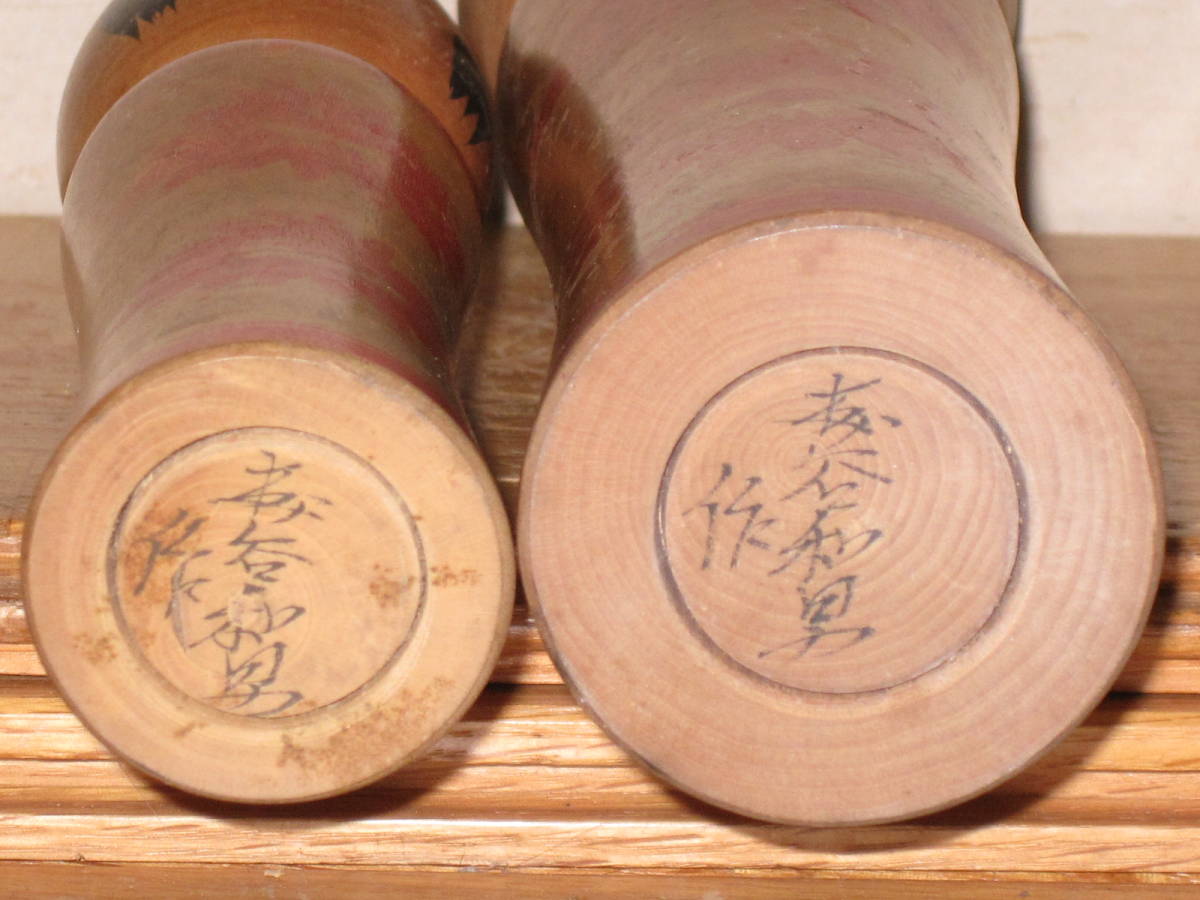 森谷和男
作
森谷和男
作